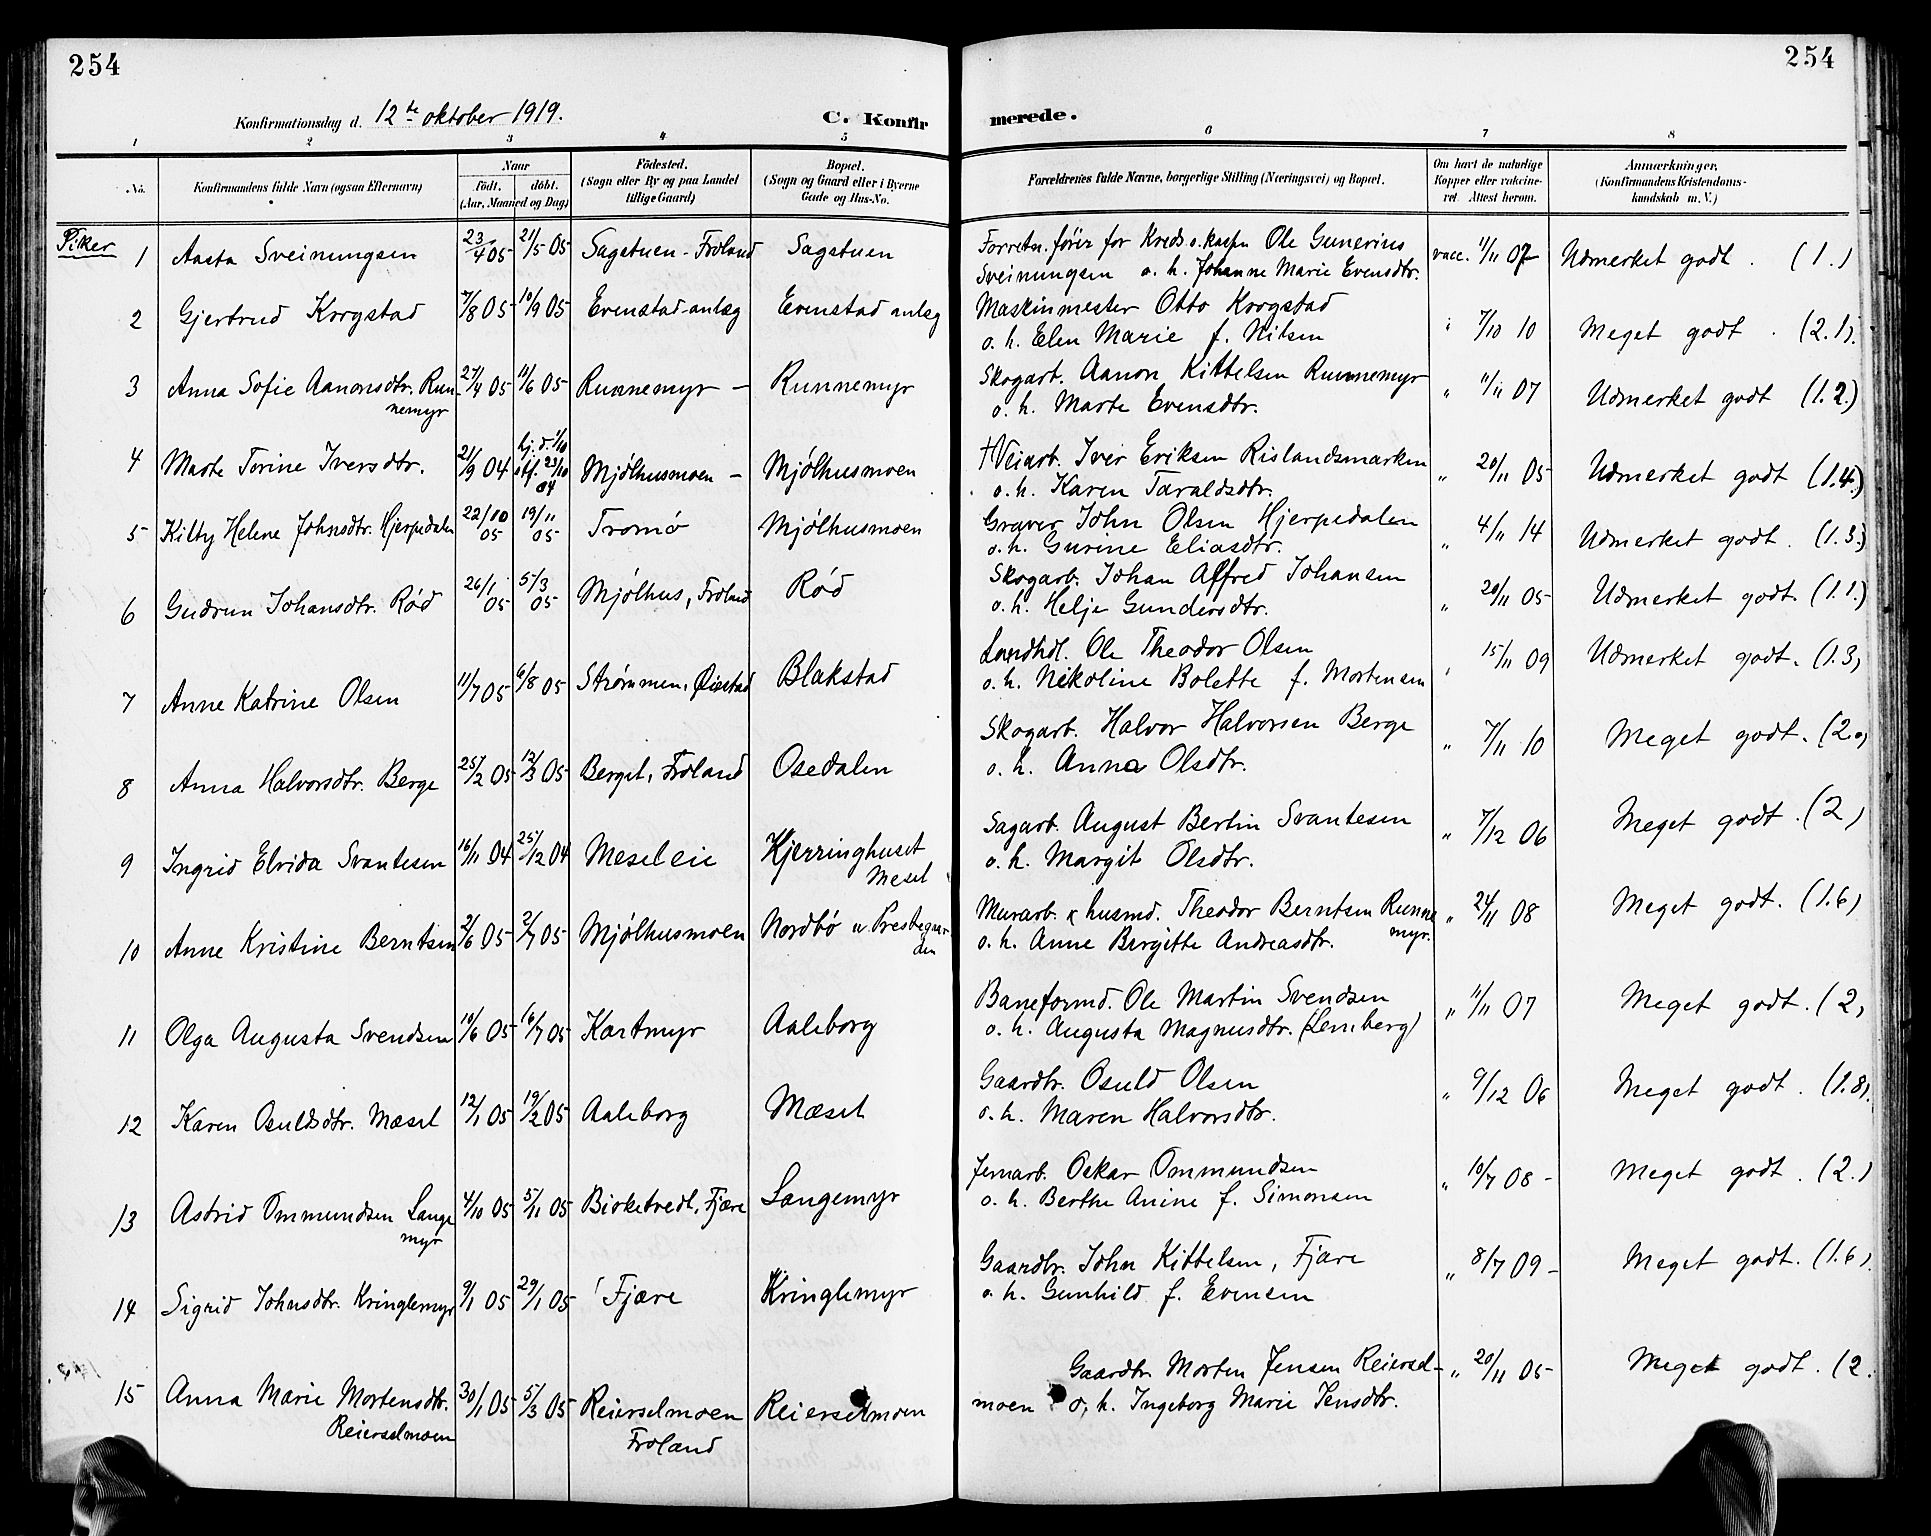 254
254
Konfirmationsdag d. 12te oktober 1919.
C. Konfir merede.
1 2 3 4 5 6 7 8
No.
Konfirmandens fulde Navn (ogsaa Efternavn)
Naar
født. døbt.
(Aar, Maaned og Dag)
Fødested.
(Sogn eller By og paa Landet
tillige Gaard)
Bopæl.
(Sogn og Gaard eller i Byerne
Gade og Hus-No.
Forældrenes fulde Navne, borgerlige Stilling (Næringsvei) og Bopæl.
Om havt de naturlige
Kopper eller vakcine-
ret. Attest herom.
Anmærkninger,
(Konfirmandens Kristendoms-
kundskab m. V.)
Piker
1 Aasta Sveinungsen 23/4 05 21/5 05 Sagstuen - Froland Sagstuen Forretn. fører for Kreds o. kaspn Ole Gunerius vacc. 1/11 07 Udmerket godt. (1.)
Sveinungsen o. h. Johanne Marie Evensdtr.
2 Gjertrud Krogstad 7/8 05 10/9 05 Evenstad anlæg Evenstad anlæg Maskinmester Otto Krogstad
o. h. Elen Marie f. Nilsen " 7/10 10 Meget godt. (2.1).
3 Anna Sofie Aanonsdtr. Run- 27/4 05 11/6 05 Runnemyr - Runnemyr Skogarb. Aanon Kittelsen Runnemyr " 11/11 07 Udmerket godt (1.2.)
nemyr o. h. Marte Evensdtr.
4 Marte Torine Iversdtr. 21/9 04 hj. d. 1/10
stf. 23/10
04 Mjølhusmoen - Mjølhusmoen † Veiarb. Iver Eriksen Rislandsmarken " 20/11 05 Udmerket godt (1.4.)
o. h. Karen Taraldsdtr.
5 Kitty Helene Johnsdtr. Hjerpedalen 22/10 05 19/11 05 Tromø Mjølhusmoen Graver John Olsen Hjerpedalen " 4/11 14 Udmerket godt. (1.3.)
o. h. Gurine Eliasdtr.
6 Gudrun Johansdtr. Rød 26/1 05 5/3 05 Mjølhus, Froland Rød Skogarb. Johan Alfred Johansen " 20/11 05 Udmerket godt. (1.1.)
o. h. Helje Gundersdtr.
7 Anne Katrine Olsen 11/7 05 6/8 05 Strømmen, Øiestad Blakstad Landhdl. Ole Theodor Olsen " 15/11 09 Udmerket godt. (1.3)
o. h. Nikoline Bolette f. Mortensen
8 Anna Halvorsdtr. Berge 25/2 05 12/3 05 Berget, Froland Osedalen Skogarb. Halvor Halvorsen Berge " 7/11 10 Meget godt. (2.)
o. h. Anna Olsdtr.
9 Ingrid Elvida Svantesen 16/11 04 25/12 04 Mesel eie Kjerringhuset Sagarb. August Bertin Svantesen " 7/12 06 Meget godt. (2)
Mesel o. h. Margit Olsdtr.
10 Anne Kristine Berntsen 2/6 05 2/7 05 Mjølhusmoen Nordbø u. Prestegaar- Murarb. & husmd. Theodor Berntsen Runne " 24/11 08 Meget godt. (1.6)
den o. h. Anne Birgitte Andreasdtr. myr.
11 Olga Augusta Svendsen 10/6 05 16/7 05 Kartmyr Aaleborg Baneformd. Ole Martin Svendsen " 11/11 07 Meget godt. (2,
o. h. Augusta Magnusdtr. (Lernberg)
12 Karen Osuldsdtr. Mæsel 12/1 05 19/2 05 Aaleborg Mæsel Gaardbr. Osuld Olsen " 9/12 06 Meget godt. (1.8)
o. h. Maren Halvorsdtr.
13 Astrid Ommundsen Lange 4/10 05 5/11 05 Birketvedt, Fjære Langemyr Jernarb. Oskar Ommundsen " 10/7 08 - Meget godt. (2.)
myr o. h. Berthe Anine f. Simonsen
14 Sigrid Johnsdtr. Kringlemyr 9/1 05 29/1 05 Fjære Kringlemyr Gaardbr. John Kittelsen, Fjære " 8/7 09 - Meget godt. (1.6)
o. h. Gunhild f. Evensen
15 Anna Marie Mortensdtr. 30/1 05 5/3 05 Reierselmoen Reierselmoen Gaardbr. Morten Jensen Reiersel- " 20/11 05 Meget godt. (2.
Reierselmoen Froland moen o. h. Ingeborg Marie Jensdtr.